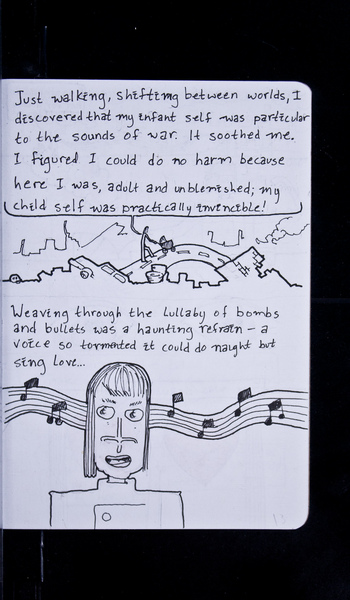 Just walking, shifting between worlds, I
discovered that my infant self was particular
to the sounds of war. It soothed me.
I figured I could do no harm because
here I was, adult and unblemished; my
child self was practically invincible!
Weaving through the lullaby of bombs
and bullets was a haunting refrain – a
voice so tormented it could do naught but
sing love...
13